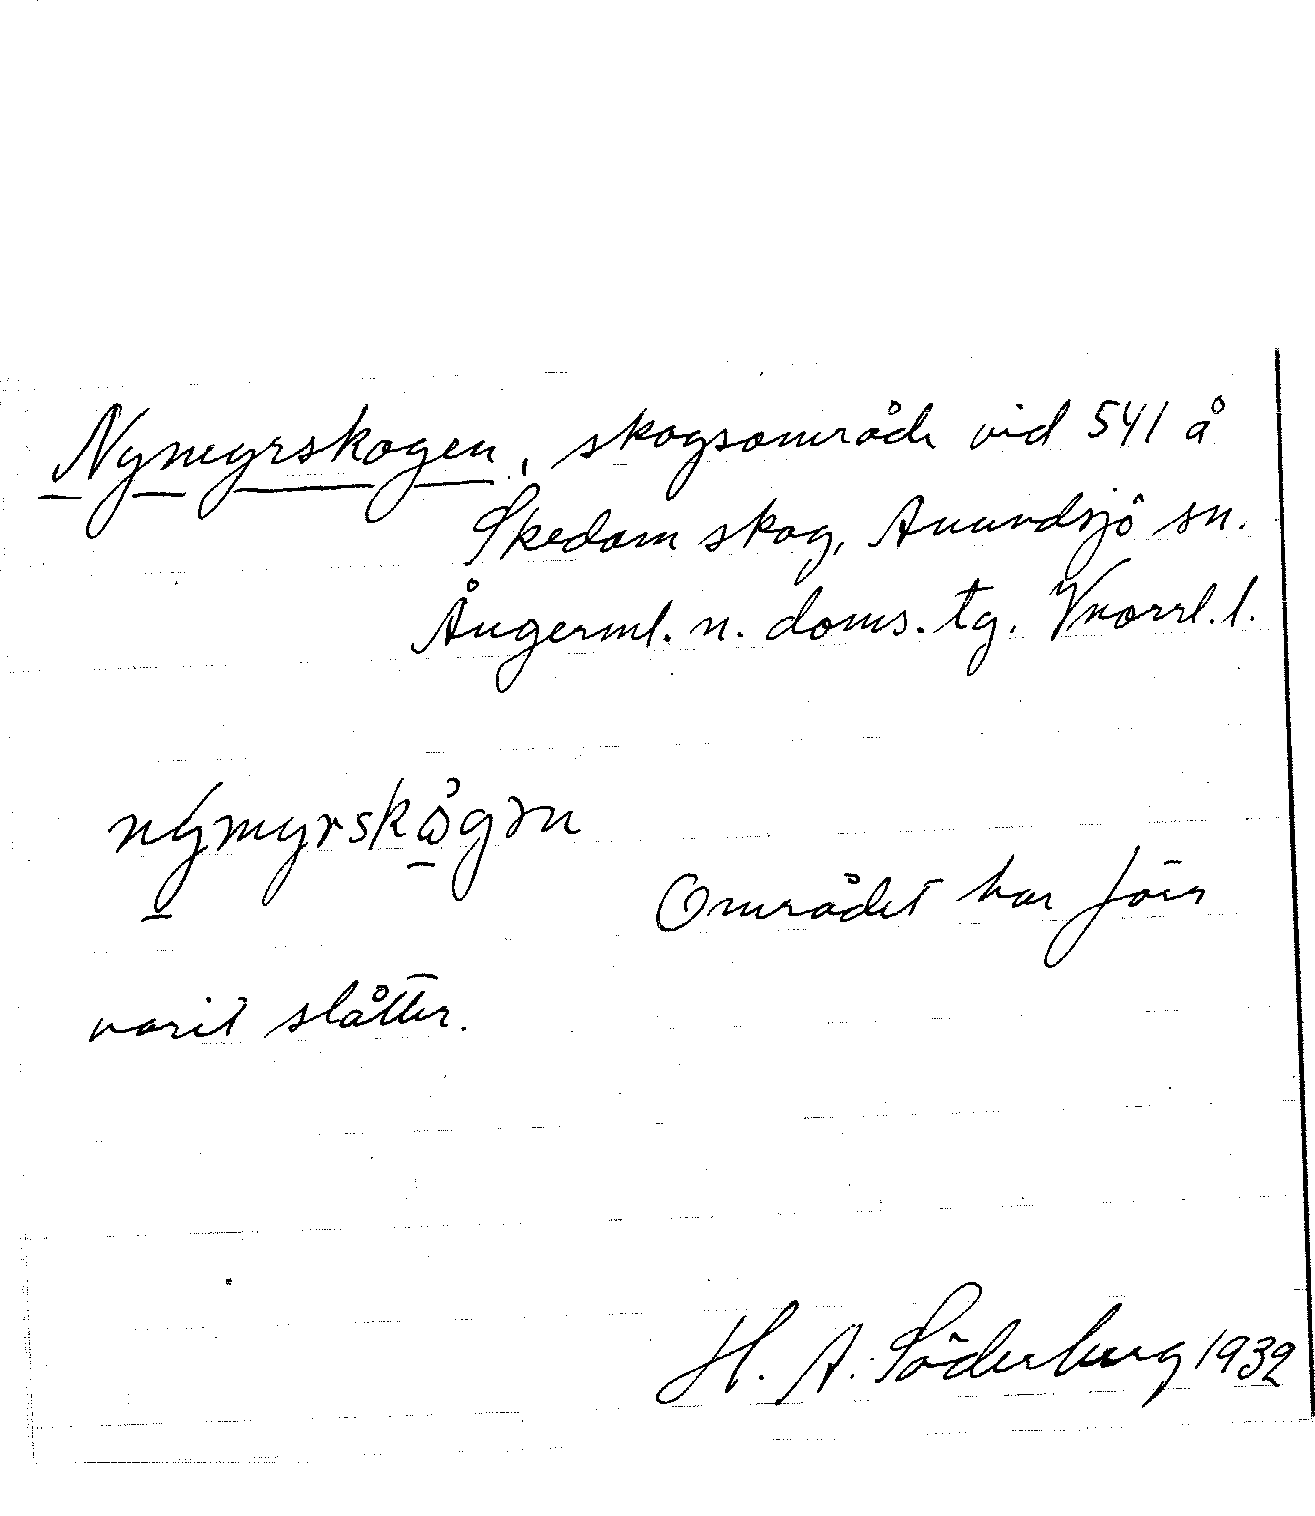 Nymyrskogen, skogsområde vid 541 å
Skedom skog, Anundsjö sn.
Ångerml. n. doms. tg. Vnorrl. l.
Området har förr
varit slåtter.
H. A. Söderberg 1932